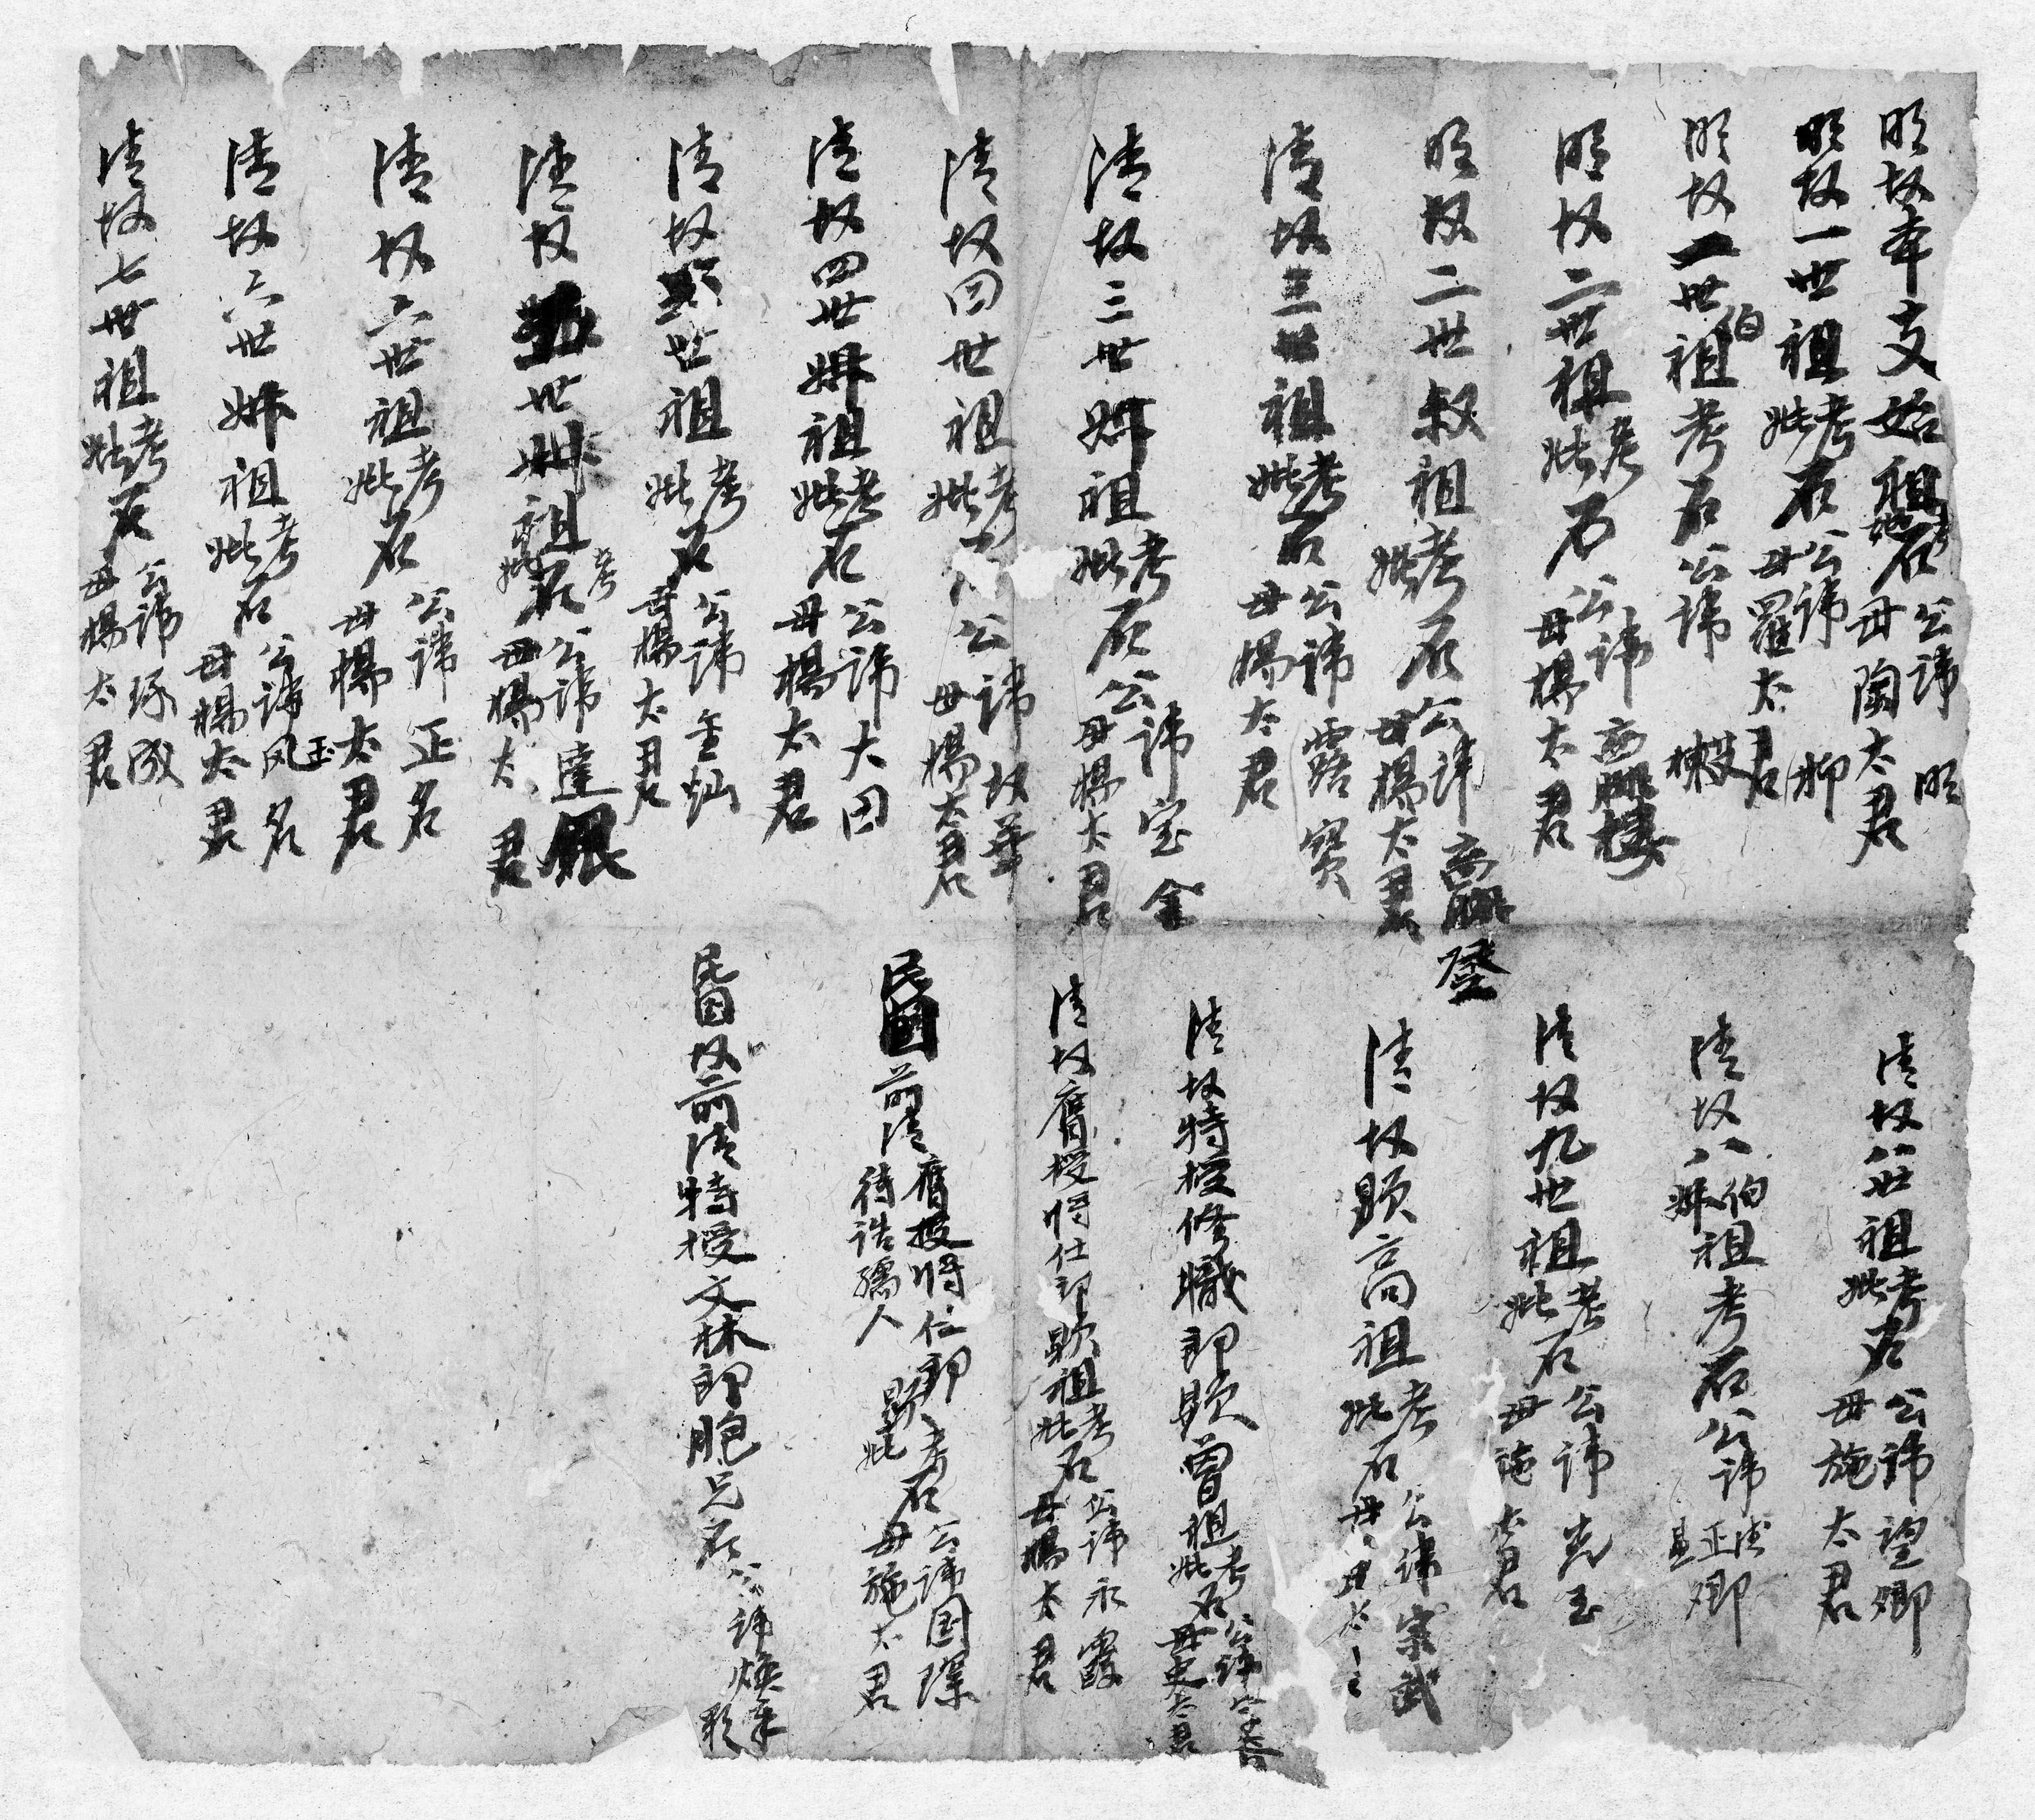 明故本支始祖考妣石公諱明母陶太君
明故一世祖考妣石公諱柳母羅太君
明故一世伯祖考石公諱
明故二世祖考妣石公諱母楊太君
明故二世叔祖考妣石公諱登母楊太君
清故三世祖考妣石公諱露寶母楊太君
清故三世祖考妣石公諱宝金母楊太君
清故四世祖考妣公諱故華母楊太君
清故四世祖考妣石公諱大因母楊太君
清故世祖考妣石公諱金灿母楊太君
清故五世祖考妣石公諱達銀母楊太君
清故六世祖考妣石公諱正名母楊太君
清故六世祖考妣石公諱风玉名母楊太君
清故七世祖考妣石公諱琢成母楊太君
清故八世祖考妣石公諱望卿母施太君
清故八伯祖考石公諱正卿
清故九世祖考妣石公諱光玉母施太君
清故顕高祖考妣石公諱宗武母太
清故特授修職郎顕曾祖考妣石公諱母史太君
清故膺授将仕郎顕祖考妣石公諱永霞母楊太君
民國前清膺授将仕郎待誥孺人顕考妣石公諱国琛母施太君
民国故前清特授文林郎胞兄石公諱煥章